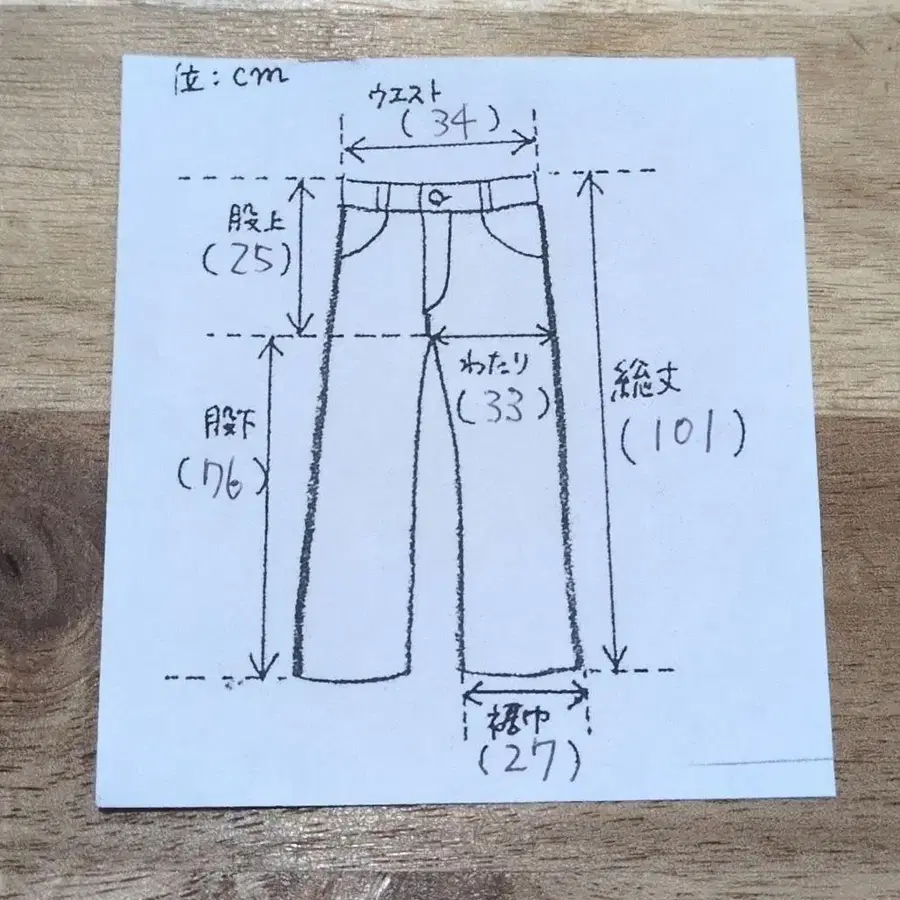 位:cm
ウエスト
(34)
股上
(25)
わたり
(33)
股下
(76)
総丈
(101)
裾巾
(27)